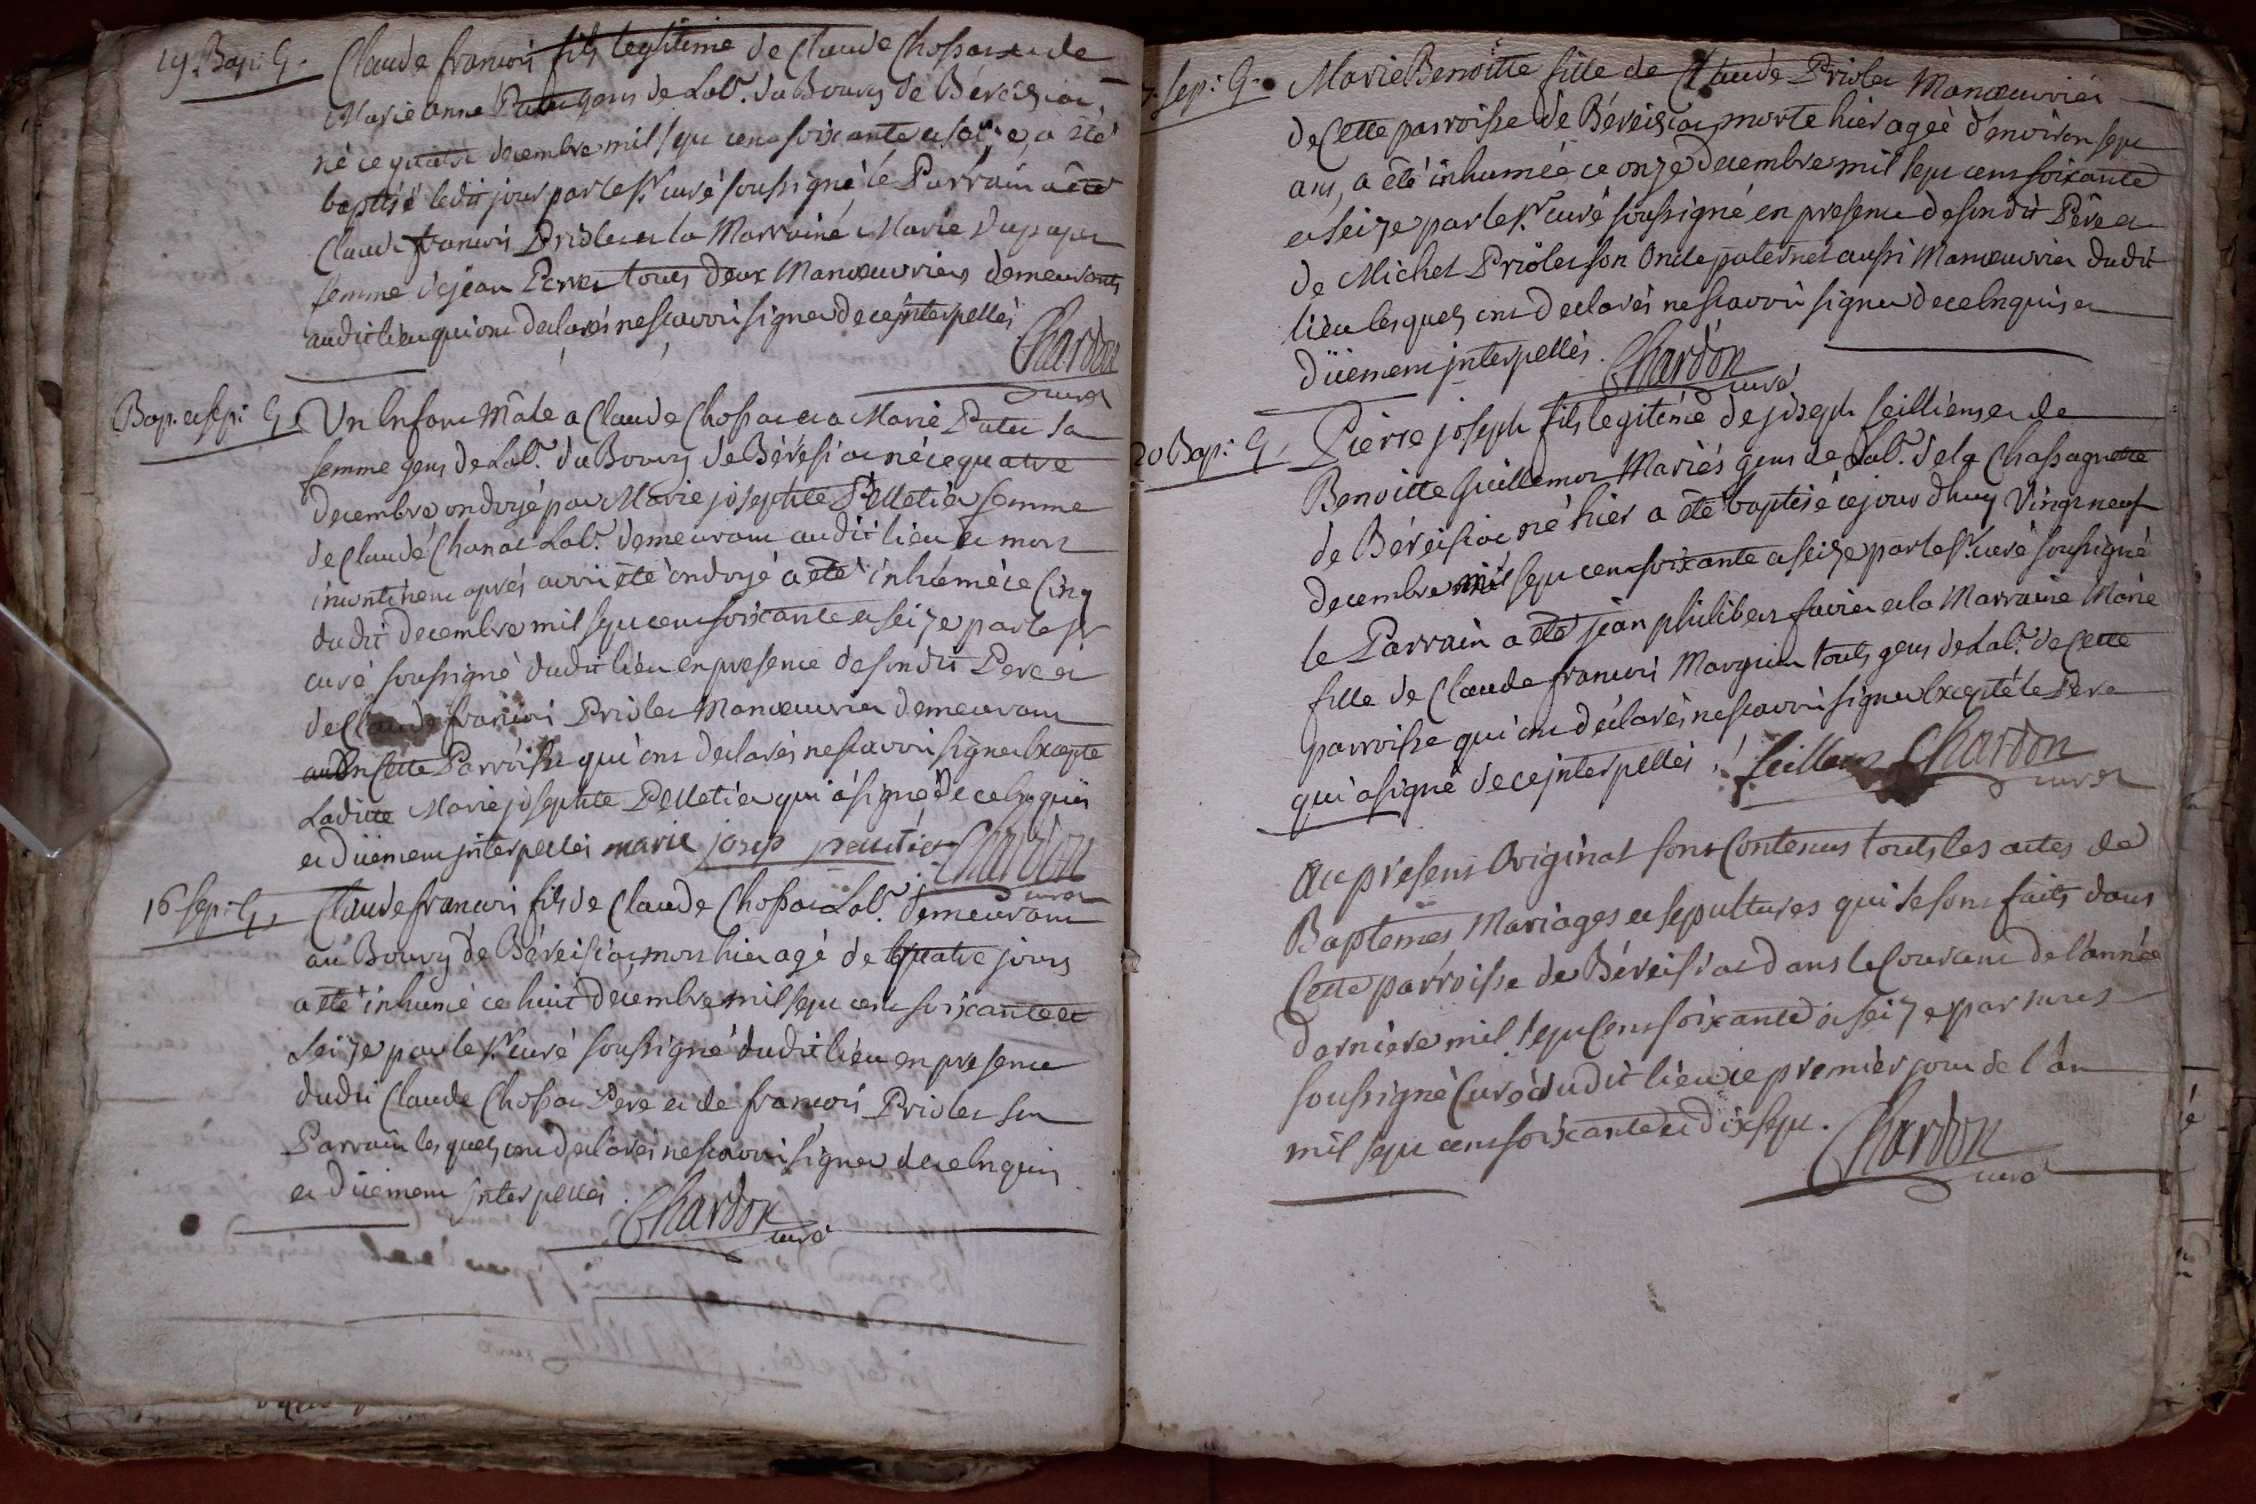 19. Bap: G. Claude francois fils legitime de Claude Chossat et de
Marie anne Putet gens de Lab.r du Bourg de Béreisiat,
né ce quatre decembre mil sept cens soixante et seize, a été
baptisé ledit jour par le S.r curé soussigné, le Parrain a été
Claude francois Priolet et la Marraine Marie Dupupet
femme de jean Perret touts deux Manoeuvriers demeurants
audit lieu qui ont declarés ne scavoir signer de ce jnterpellés
Chardon
curé
Bap. et sep: G. Un Enfant Mâle a Claude Chossat et a Marie Putet sa
femme gens de Lab.r du Bourg de Béresiat né ce quatre
decembre ondoyé par Marie josephte Pelletier femme
de Claude Chanat Lab.r demeurant audit lieu et mort
incontinent aprés avoir été ondoyé a été inhumé ce Cinq
dudit decembre mil sept cens soixante et seize par le sr
curé soussigné dudit lieu en presence de son dit Pere et
de Claude francois Priolet Manoeuvrier demeurant
en Cette Parroisse qui ont declarés ne scavoir signer Excepté
Laditte Marie josephte Pelletier qui a signé de ce Enquis
et düement jnterpellés marie josep peletier Chardon
curé
16 sep: G. Claude francois fils de Claude Chossat Lab.r demeurant
au Bourg de Béreisiat, mort hier agé de quatre jours
a été inhumé ce huit decembre mil sept cens soixante et
seize par le S.r curé soussigné dudit lieu en presence
dudit Claude Chossat Pere et de francois Priolet son
Parrain les quels ont declarés ne scavoir signer de ce Enquis
et düement jnterpellés. Chardon
curé
7. sep: G. Marie Benoitte fille de Claude Priolet Manoeuvrier
de Cette parroisse de Béreisiat, morte hier agée d'environ sept
ans, a été inhumée ce onze decembre mil sept cens soixante
et seize par le S.r curé soussigné en presence de son dit Père et
de Michel Priolet son Oncle paternel aussi Manoeuvrier dudit
lieu les quels ont declarés ne scavoir signer de ce Enquis et
düement jnterpellés. Chardon
curé
20 Bap: G. Pierre joseph fils legitime de joseph seilliens et de
Benoitte Guillemot Mariés gens de Lab.r de la Chassagnette
de Béreisiat né hier a été baptisé ce jour d'huy Vingt neuf
decembre mil sept cens soixante et seize par le S.r curé soussigné
le Parrain a été jean philibert favier et la Marraine Marie
fille de Claude francois Marguin touts gens de Lab.r de Cette
parroisse qui ont declarés ne scavoir signer Excepté le Pere
qui a signé de ce jnterpellés. Chardon
curé
Au present Original sont Contenus touts les actes de
Baptemes Mariages et sepultures qui se sont faits dans
Cette parroisse de Béreisiat dans le Courant de l'année
derniere mil sept Cens soixante et seize par nous
soussigné Curé dudit lieu ce premier jour de l'an
mil sept cens soixante et dix sept. Chardon
curé